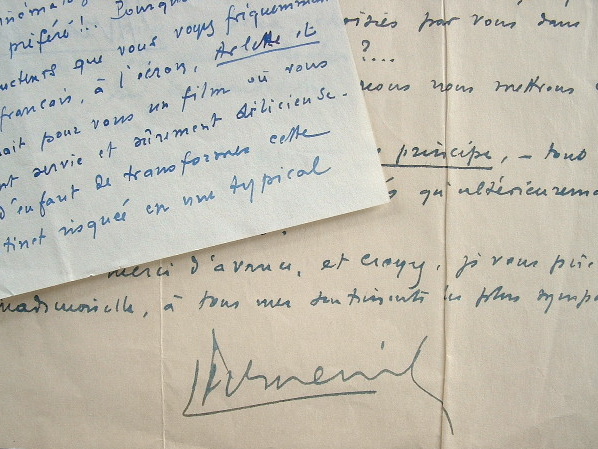 préféré!.. Pourquoi
que vous voyez fréquemment
français, à l'écran, Arlette et
ait pour vous un film où vous
nt servie et sûrement délicieuse.
d'enfant de transformer cette
tinet risquée en une typical
par vous dans
?...
nous nous mettrons
principe, – tout
qu'ultérieurement
merci d'avance, et croyez, je vous prie
mademoiselle, à tous mes sentiments les plus sympa